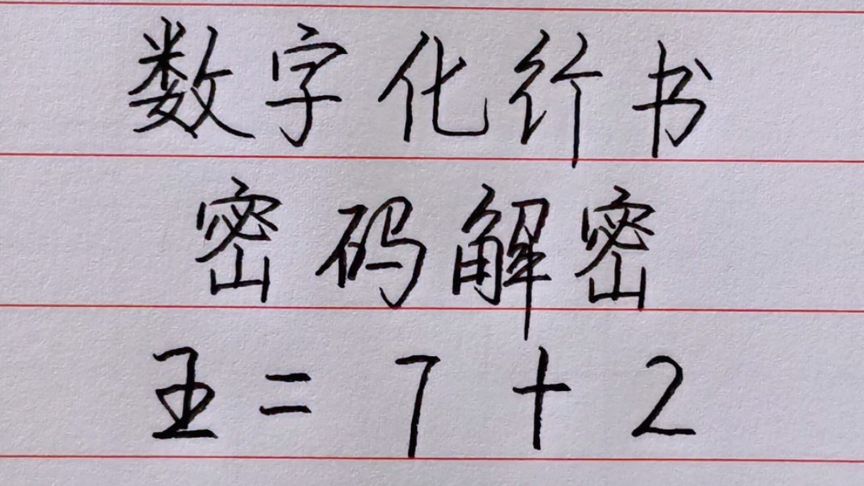 数字化行书
密码解密
王=7+2